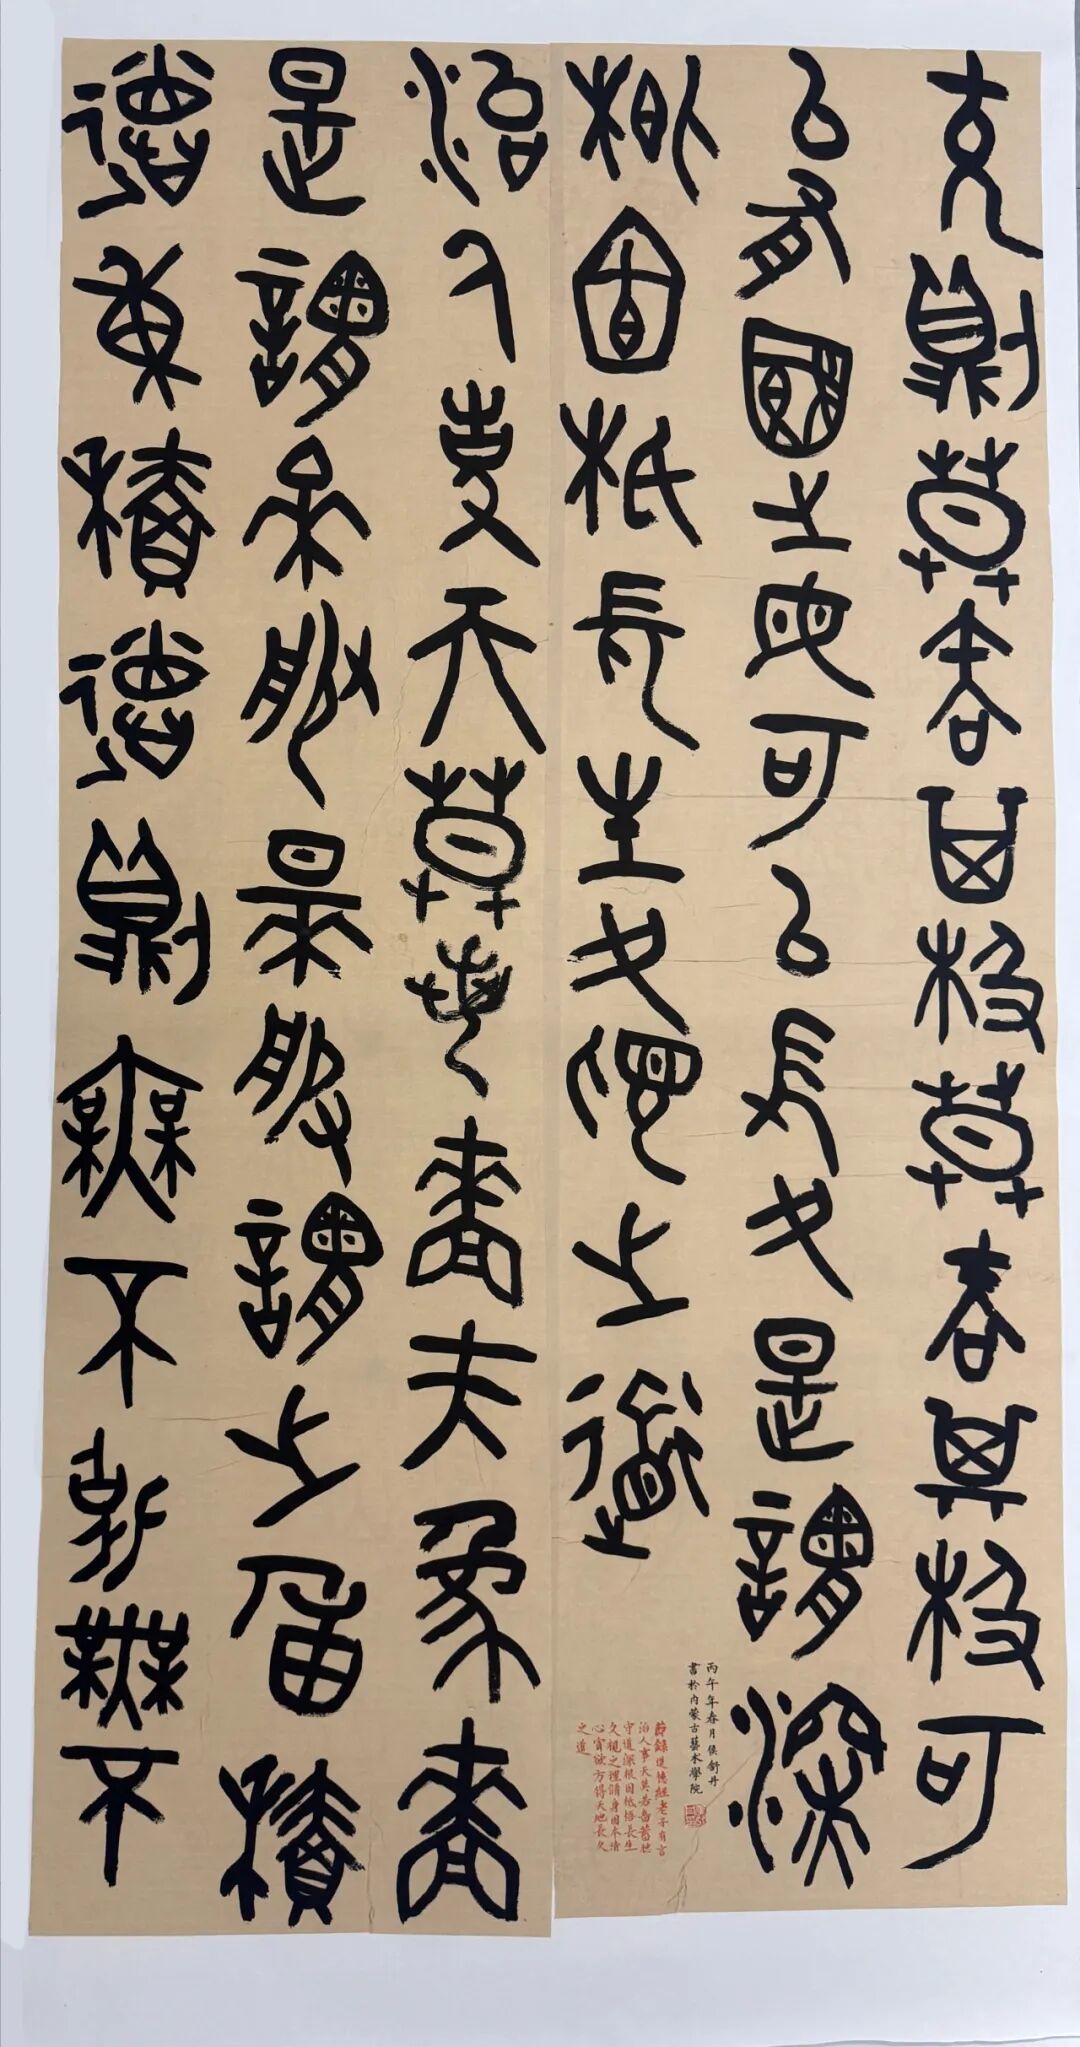 治人事天莫若嗇夫爲嗇
是謂早服早服謂之重積
德重積德則無不克無不
克則莫知其極莫知其極可
以有國之母可以長久是謂深
根固柢長生久視之道
丙午年春月侯舒丹
書於內蒙古藝術學院
節錄道德經老子有言
治人事天莫若嗇蓄德
守道深根固柢悟長生
久視之理謂身固本清
心寡欲方得天地長久
之道